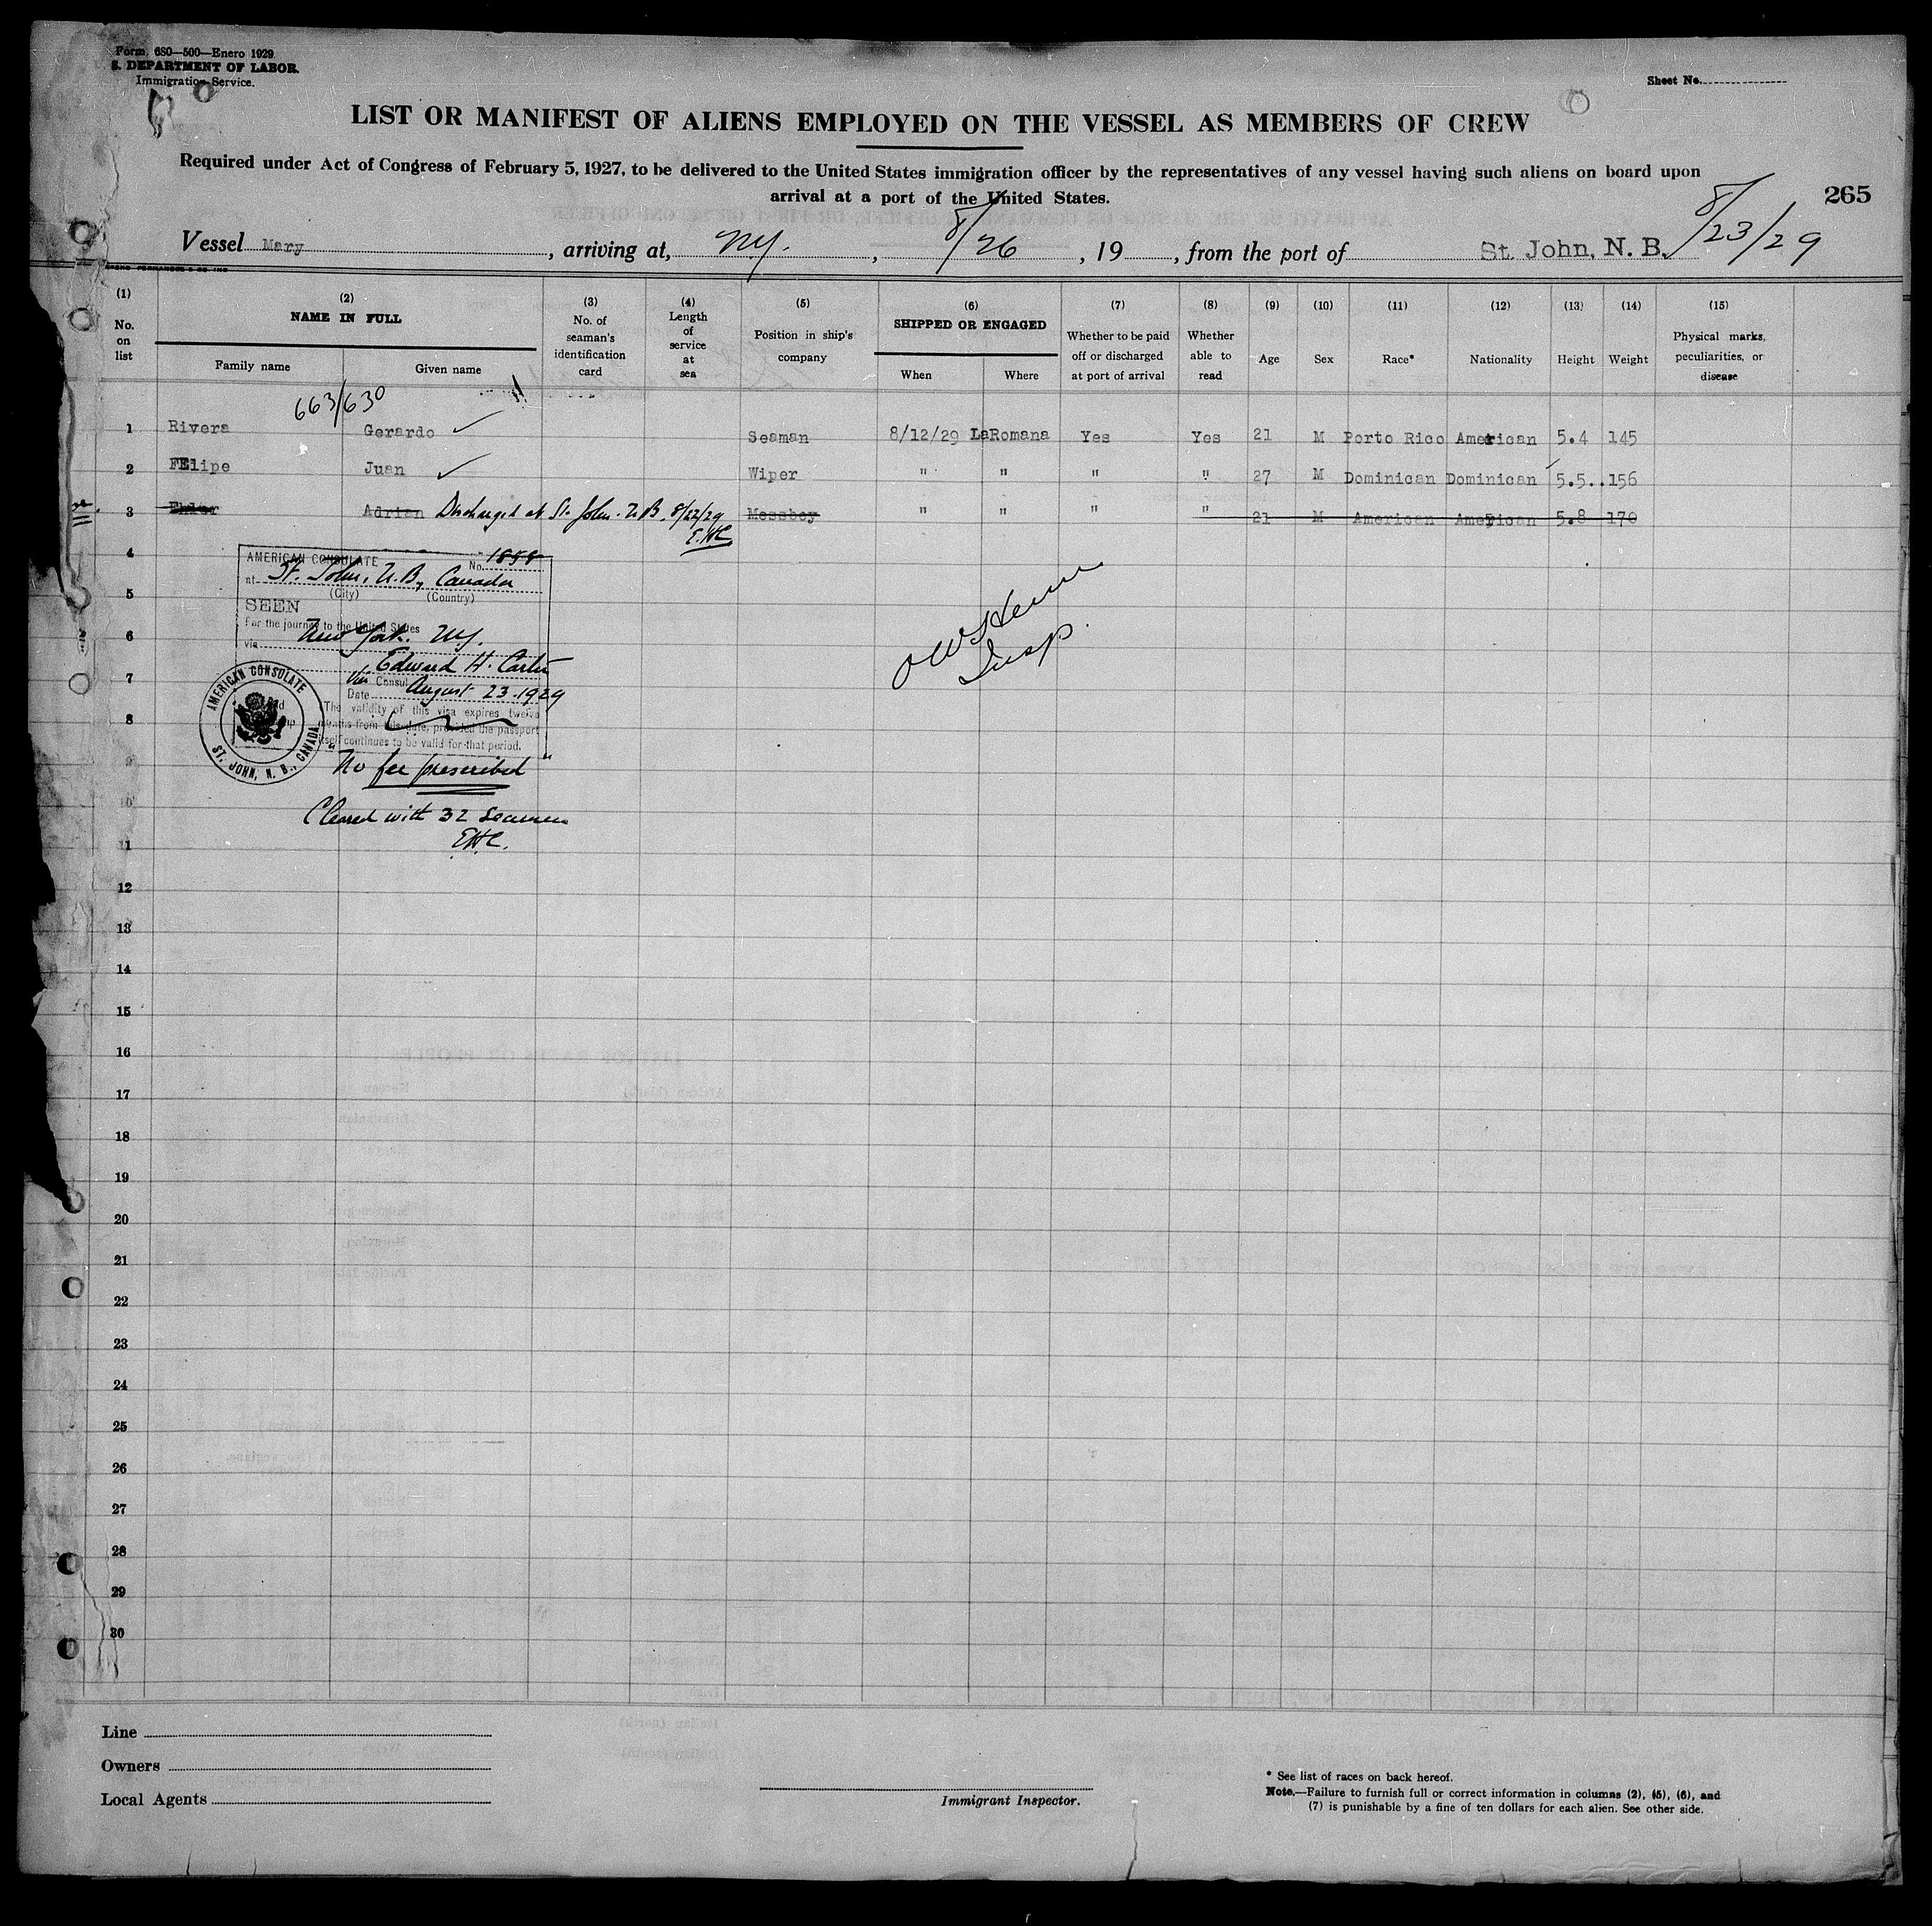 Form. 680—500—Enero 1929.
S. DEPARTMENT OF LABOR.
Immigration Service.
Sheet No.
LIST OR MANIFEST OF ALIENS EMPLOYED ON THE VESSEL AS MEMBERS OF CREW
Required under Act of Congress of February 5, 1927, to be delivered to the United States immigration officer by the representatives of any vessel having such aliens on board upon
arrival at a port of the United States.
265
Vessel Mary, arriving at, N.Y., 8/26, 19, from the port of St. John, N. B. 8/23/29
(1) (2) (3) (4) (5) (6) (7) (8) (9) (10) (11) (12) (13) (14) (15)
No. on list
NAME IN FULL
Family name
Given name
No. of seaman's identification card
Length of service at sea
Position in ship's company
SHIPPED OR ENGAGED
When
Where
Whether to be paid off or discharged at port of arrival
Whether able to read
Age
Sex
Race*
Nationality
Height
Weight
Physical marks, peculiarities, or disease
663/630
1 Rivera Gerardo Seaman 8/12/29 LaRomana Yes Yes 21 M Porto Rico American 5.4 145
2 FElipe Juan Wiper " " " " 27 M Dominican Dominican 5.5. 156
3 Adrian Discharged at St. John. N.B. 8/22/29 Messboy " " " " 21 M American American 5.8 170
E.H.C.
4
AMERICAN CONSULATE No. 1858
at St. John, N.B., Canada
(City) (Country)
5
SEEN
For the journey to the United States
6
via New York. N.Y.
Edward H. Carter
7
Vice Consul
Date August 23-1929
AMERICAN CONSULATE
ST. JOHN, N. B., CANADA
(The validity of this visa expires twelve
8
months from this date, provided the passport
itself continues to be valid for that period.
9
"No fee prescribed"
10
Cleared with 32 Seamen
EHC.
11
Insp.
12
13
14
15
16
17
18
19
20
21
22
23
24
25
26
27
28
29
30
Line
Owners
Local Agents
Immigrant Inspector.
* See list of races on back hereof.
Note.—Failure to furnish full or correct information in columns (2), (5), (6), and
(7) is punishable by a fine of ten dollars for each alien. See other side.